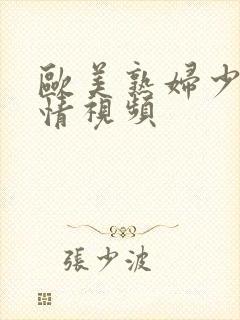 歐美熟婦少
情視頻
張少波